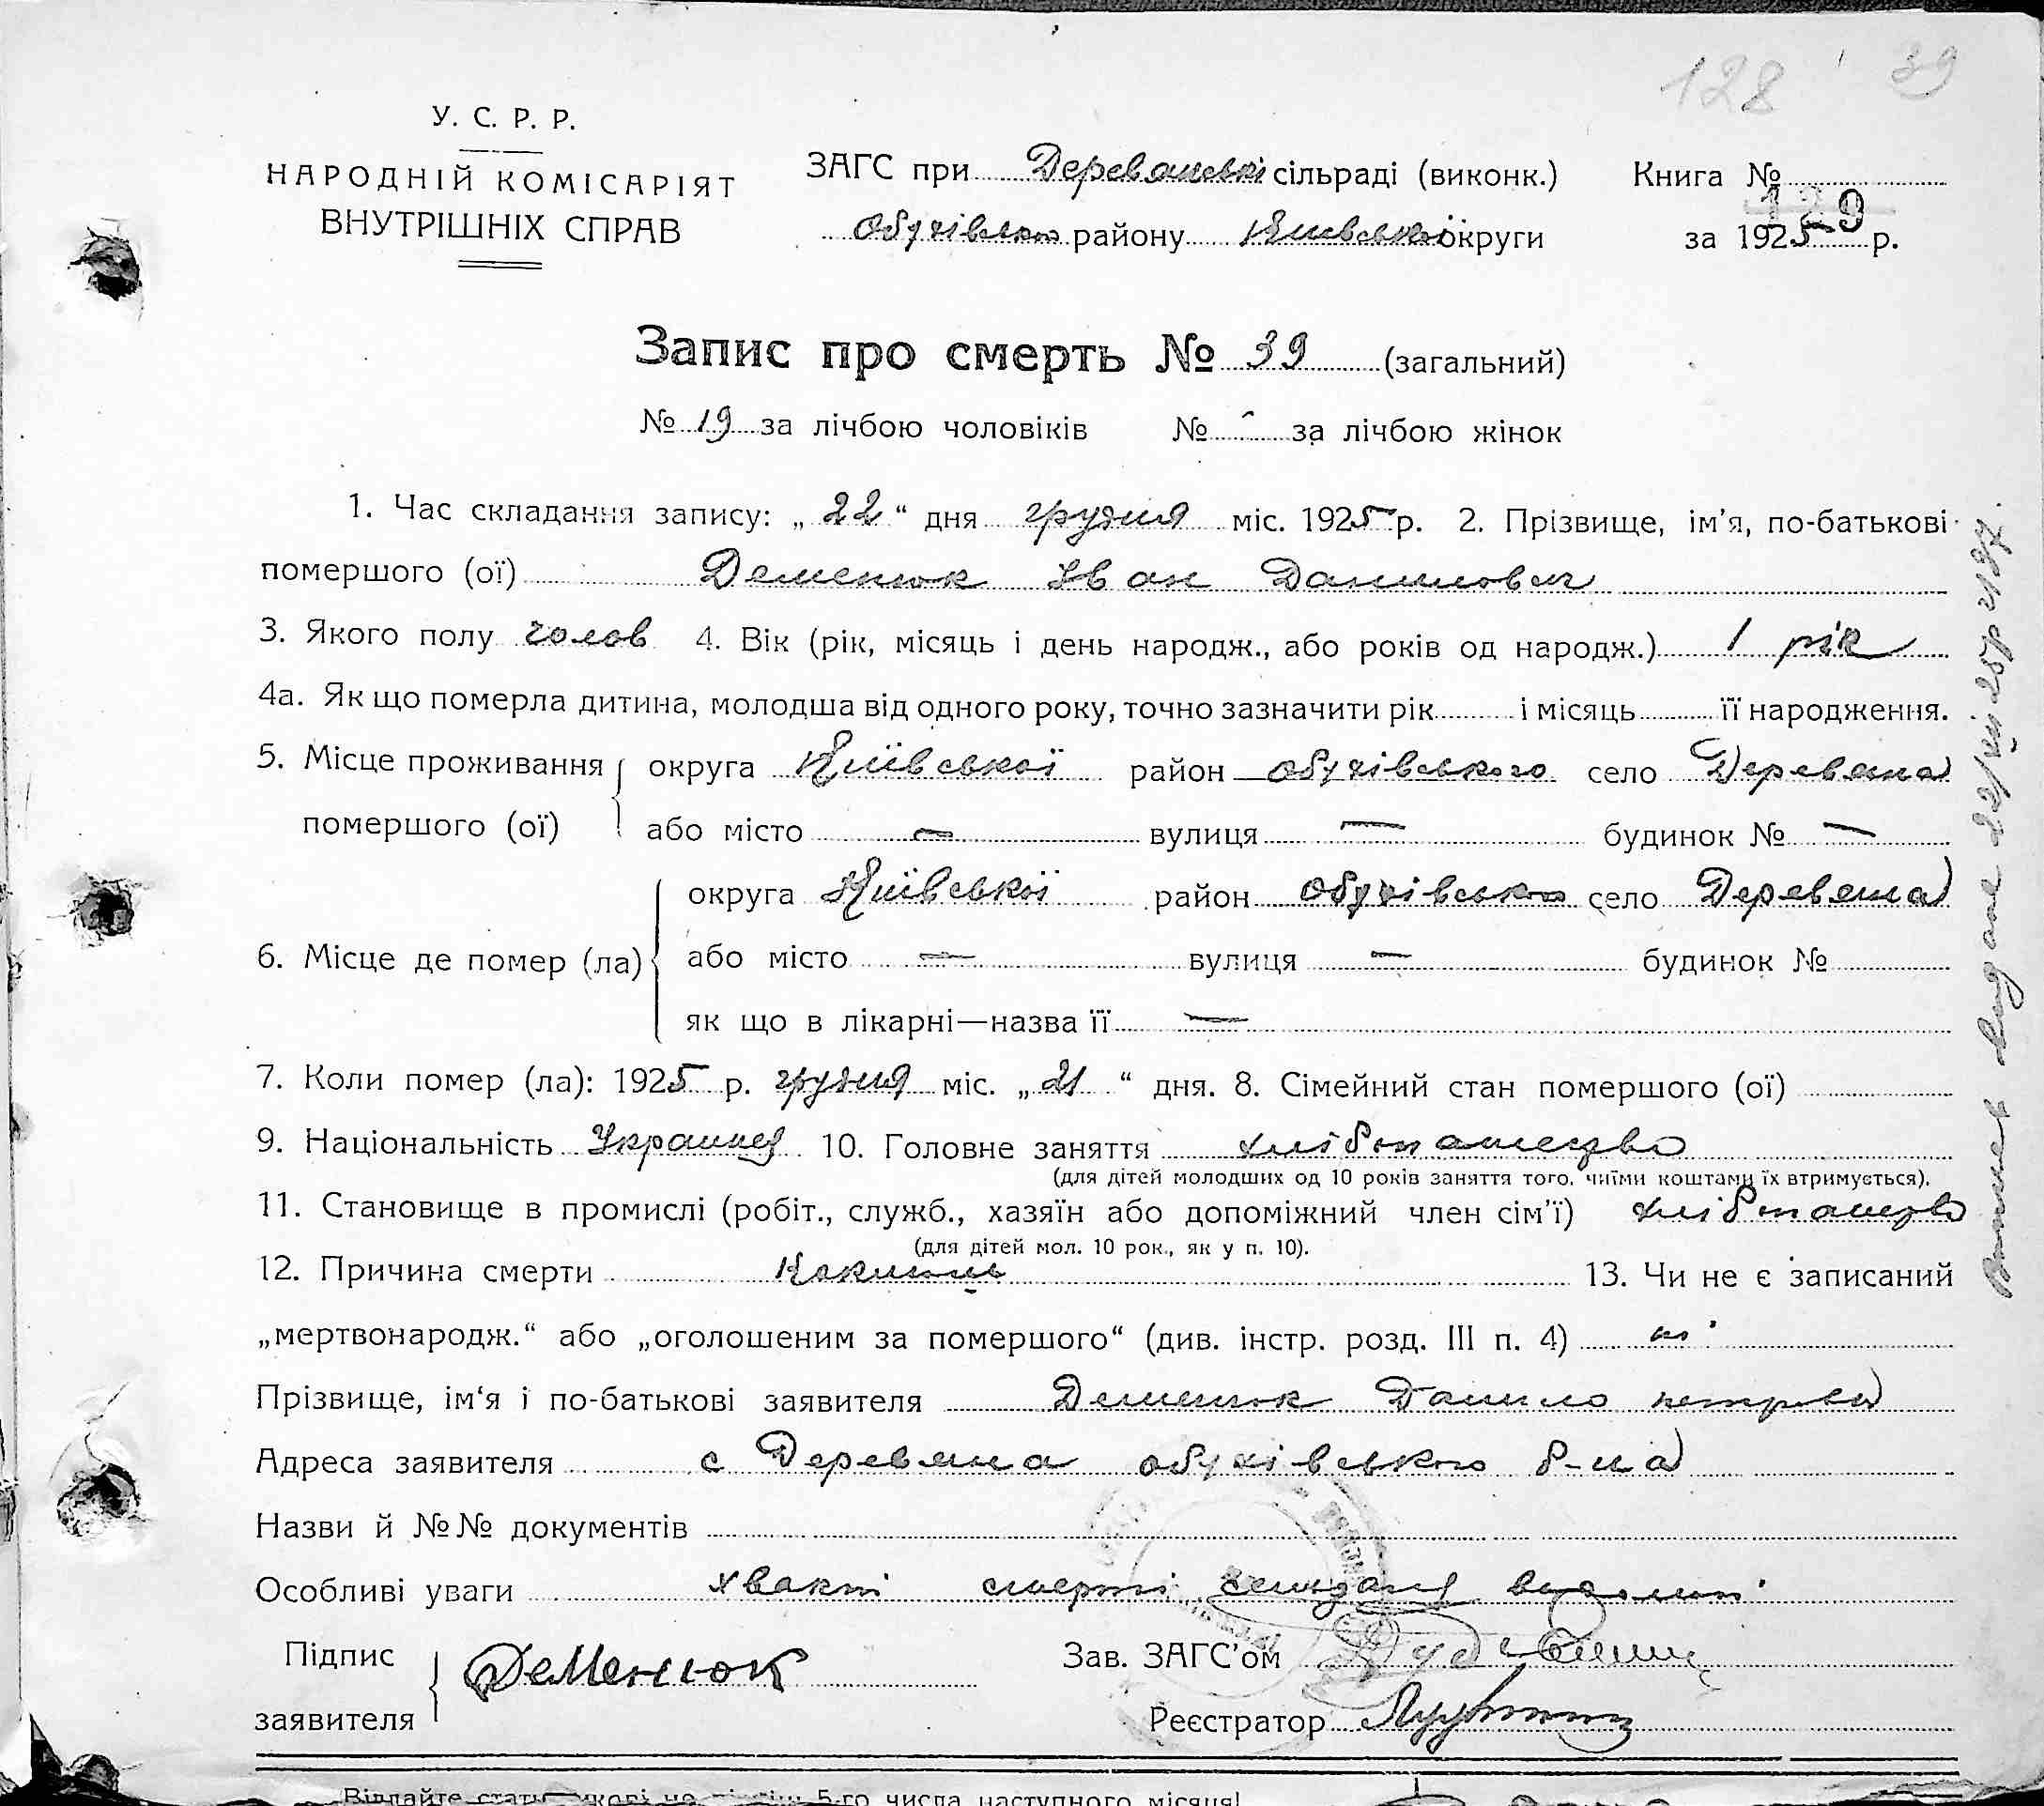 128 39
У. С. Р. Р.
НАРОДНІЙ КОМІСАРІЯТ
ВНУТРІШНІХ СПРАВ
ЗАГС при Деревянській сільраді (виконк.)
Обухівсько району Київської округи
Книга №
129
за 1925 р.
Запис про смерть № 39 (загальний)
№ 19 за лічбою чоловіків № - за лічбою жінок
1. Час складання запису: „ 22 “ дня грудня міс. 1925 р. 2. Прізвище, ім’я, по-батькові
помершого (ої) Деменюк Іван Данилович
3. Якого полу чолов 4. Вік (рік, місяць і день народж., або років од народж.) 1 рік
4а. Як що померла дитина, молодша від одного року, точно зазначити рік і місяць її народження.
5. Місце проживання округа Київської район обухівського село Деревяна
помершого (ої) або місто — вулиця — будинок № —
округа Київської район обухівсько село Деревяна
6. Місце де помер (ла) або місто — вулиця — будинок №
як що в лікарні—назва її —
7. Коли помер (ла): 1925 р. грудня міс. „ 21 “ дня. 8. Сімейний стан помершого (ої)
9. Національність Украинец 10. Головне заняття хлібопашецво
(для дітей молодших од 10 років заняття того, чиїми коштами їх втримується).
11. Становище в промислі (робіт., служб., хазяїн або допоміжний член сім’ї) хлібпашецво
(для дітей мол. 10 рок., як у п. 10).
12. Причина смерти 13. Чи не є записаний
„мертвонародж.“ або „оголошеним за помершого“ (див. інстр. розд. III п. 4) ні
Прізвище, ім‘я і по-батькові заявителя Деменюк Данило
Адреса заявителя с Деревяна обухівського р-на
Назви й №№ документів
Особливі уваги хвакт смерті
Підпис заявителя Деменюк
Зав. ЗАГС’ом
Реєстратор
5-го числа наступного місяця!